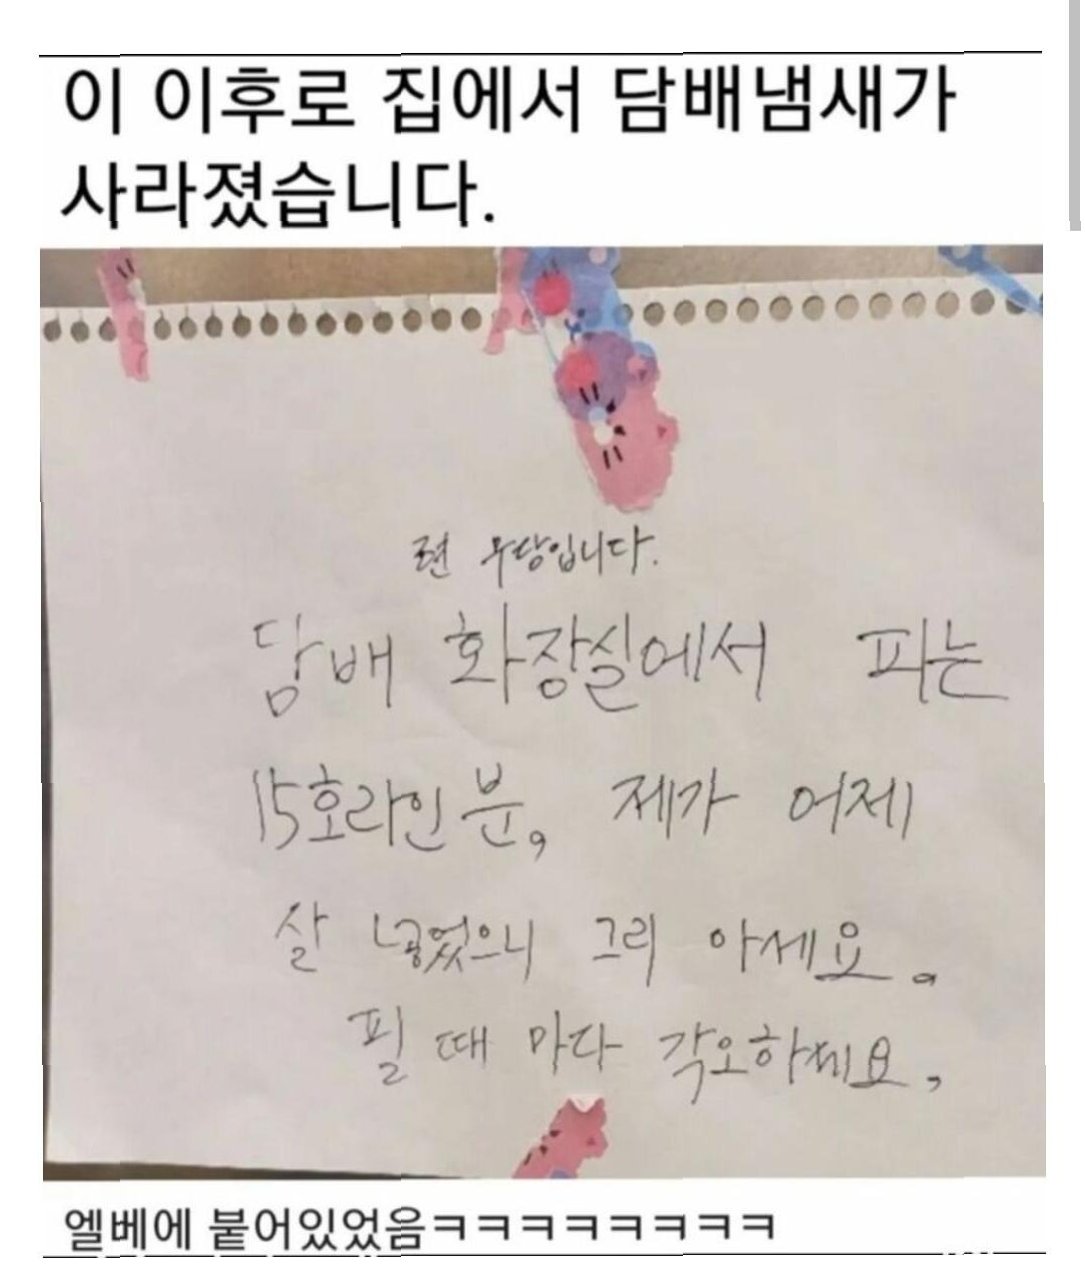 이 이후로 집에서 담배냄새가
사라졌습니다.
전 무당입니다.
담배 화장실에서 피는
15호라인 분, 제가 어제
살 넣었으니 그리 아세요.
필 때 마다 각오하세요,
엘베에 붙어있었음ㅋㅋㅋㅋㅋㅋㅋㅋㅋ